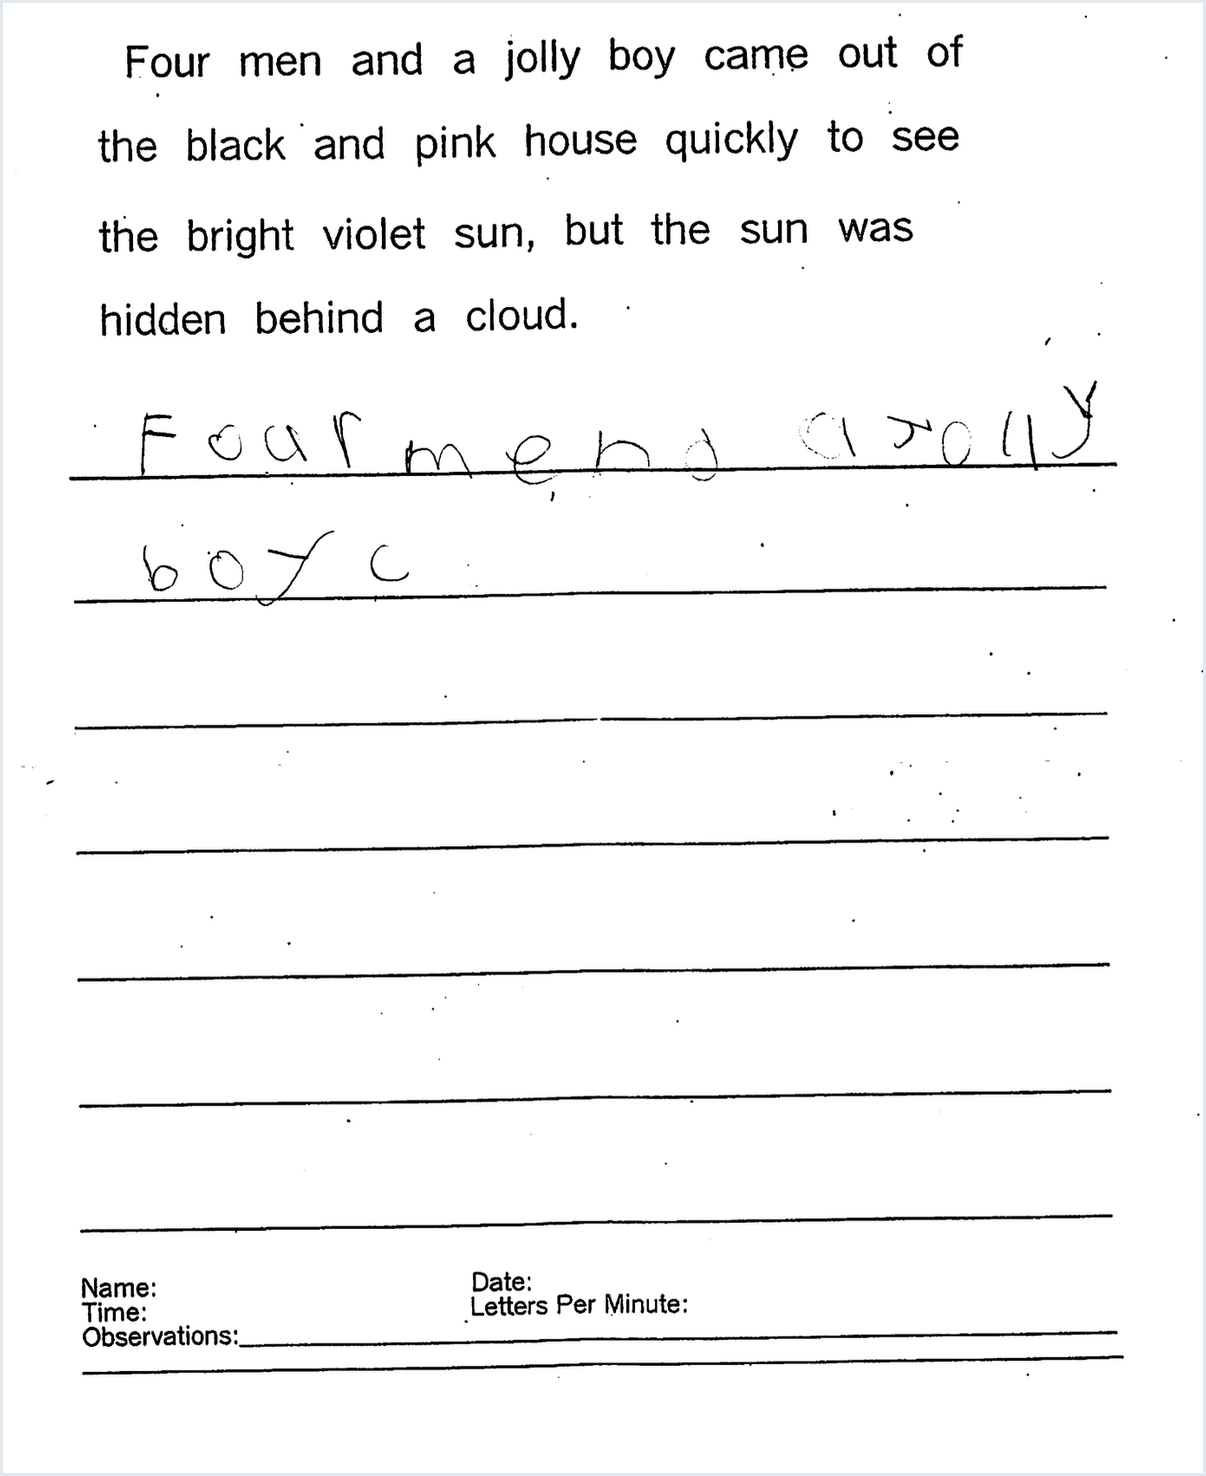 Four men and a jolly boy came out of
the black and pink house quickly to see
the bright violet sun, but the sun was
hidden behind a cloud.
Four mend a rolly
boy c
Name:
Date:
Time:
Letters Per Minute:
Observations: